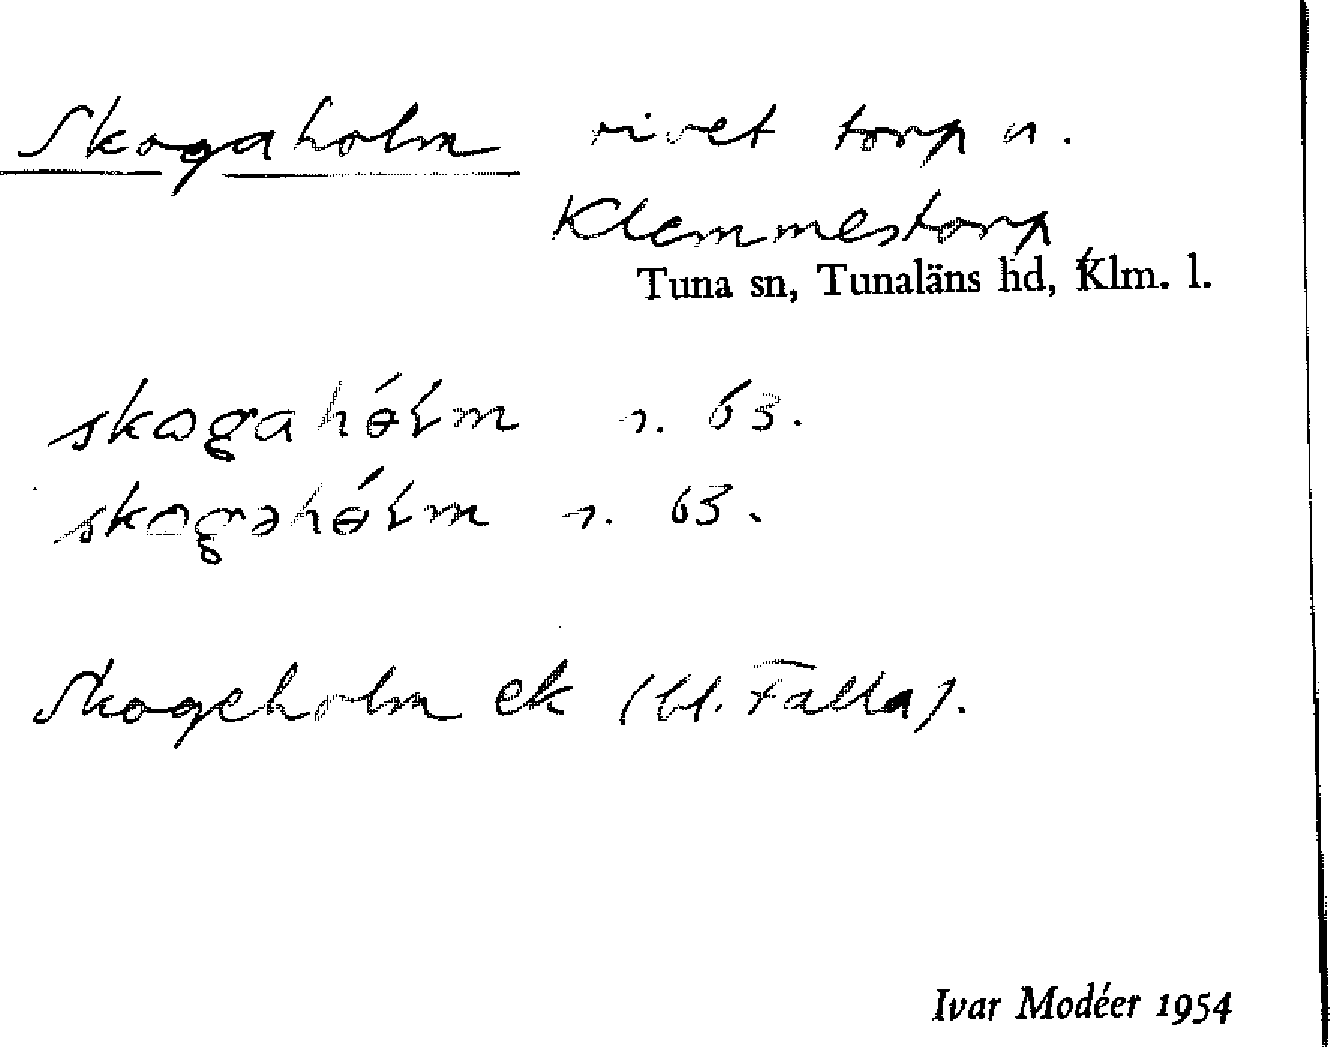 Skogaholm rivet torp u.
Klemmestorp
Tuna sn, Tunaläns hd, Klm. l.
skogahólm r. 63.
skogəhólm r. 63.
Skogeholm ek (bl. Falla).
Ivar Modéer 1954